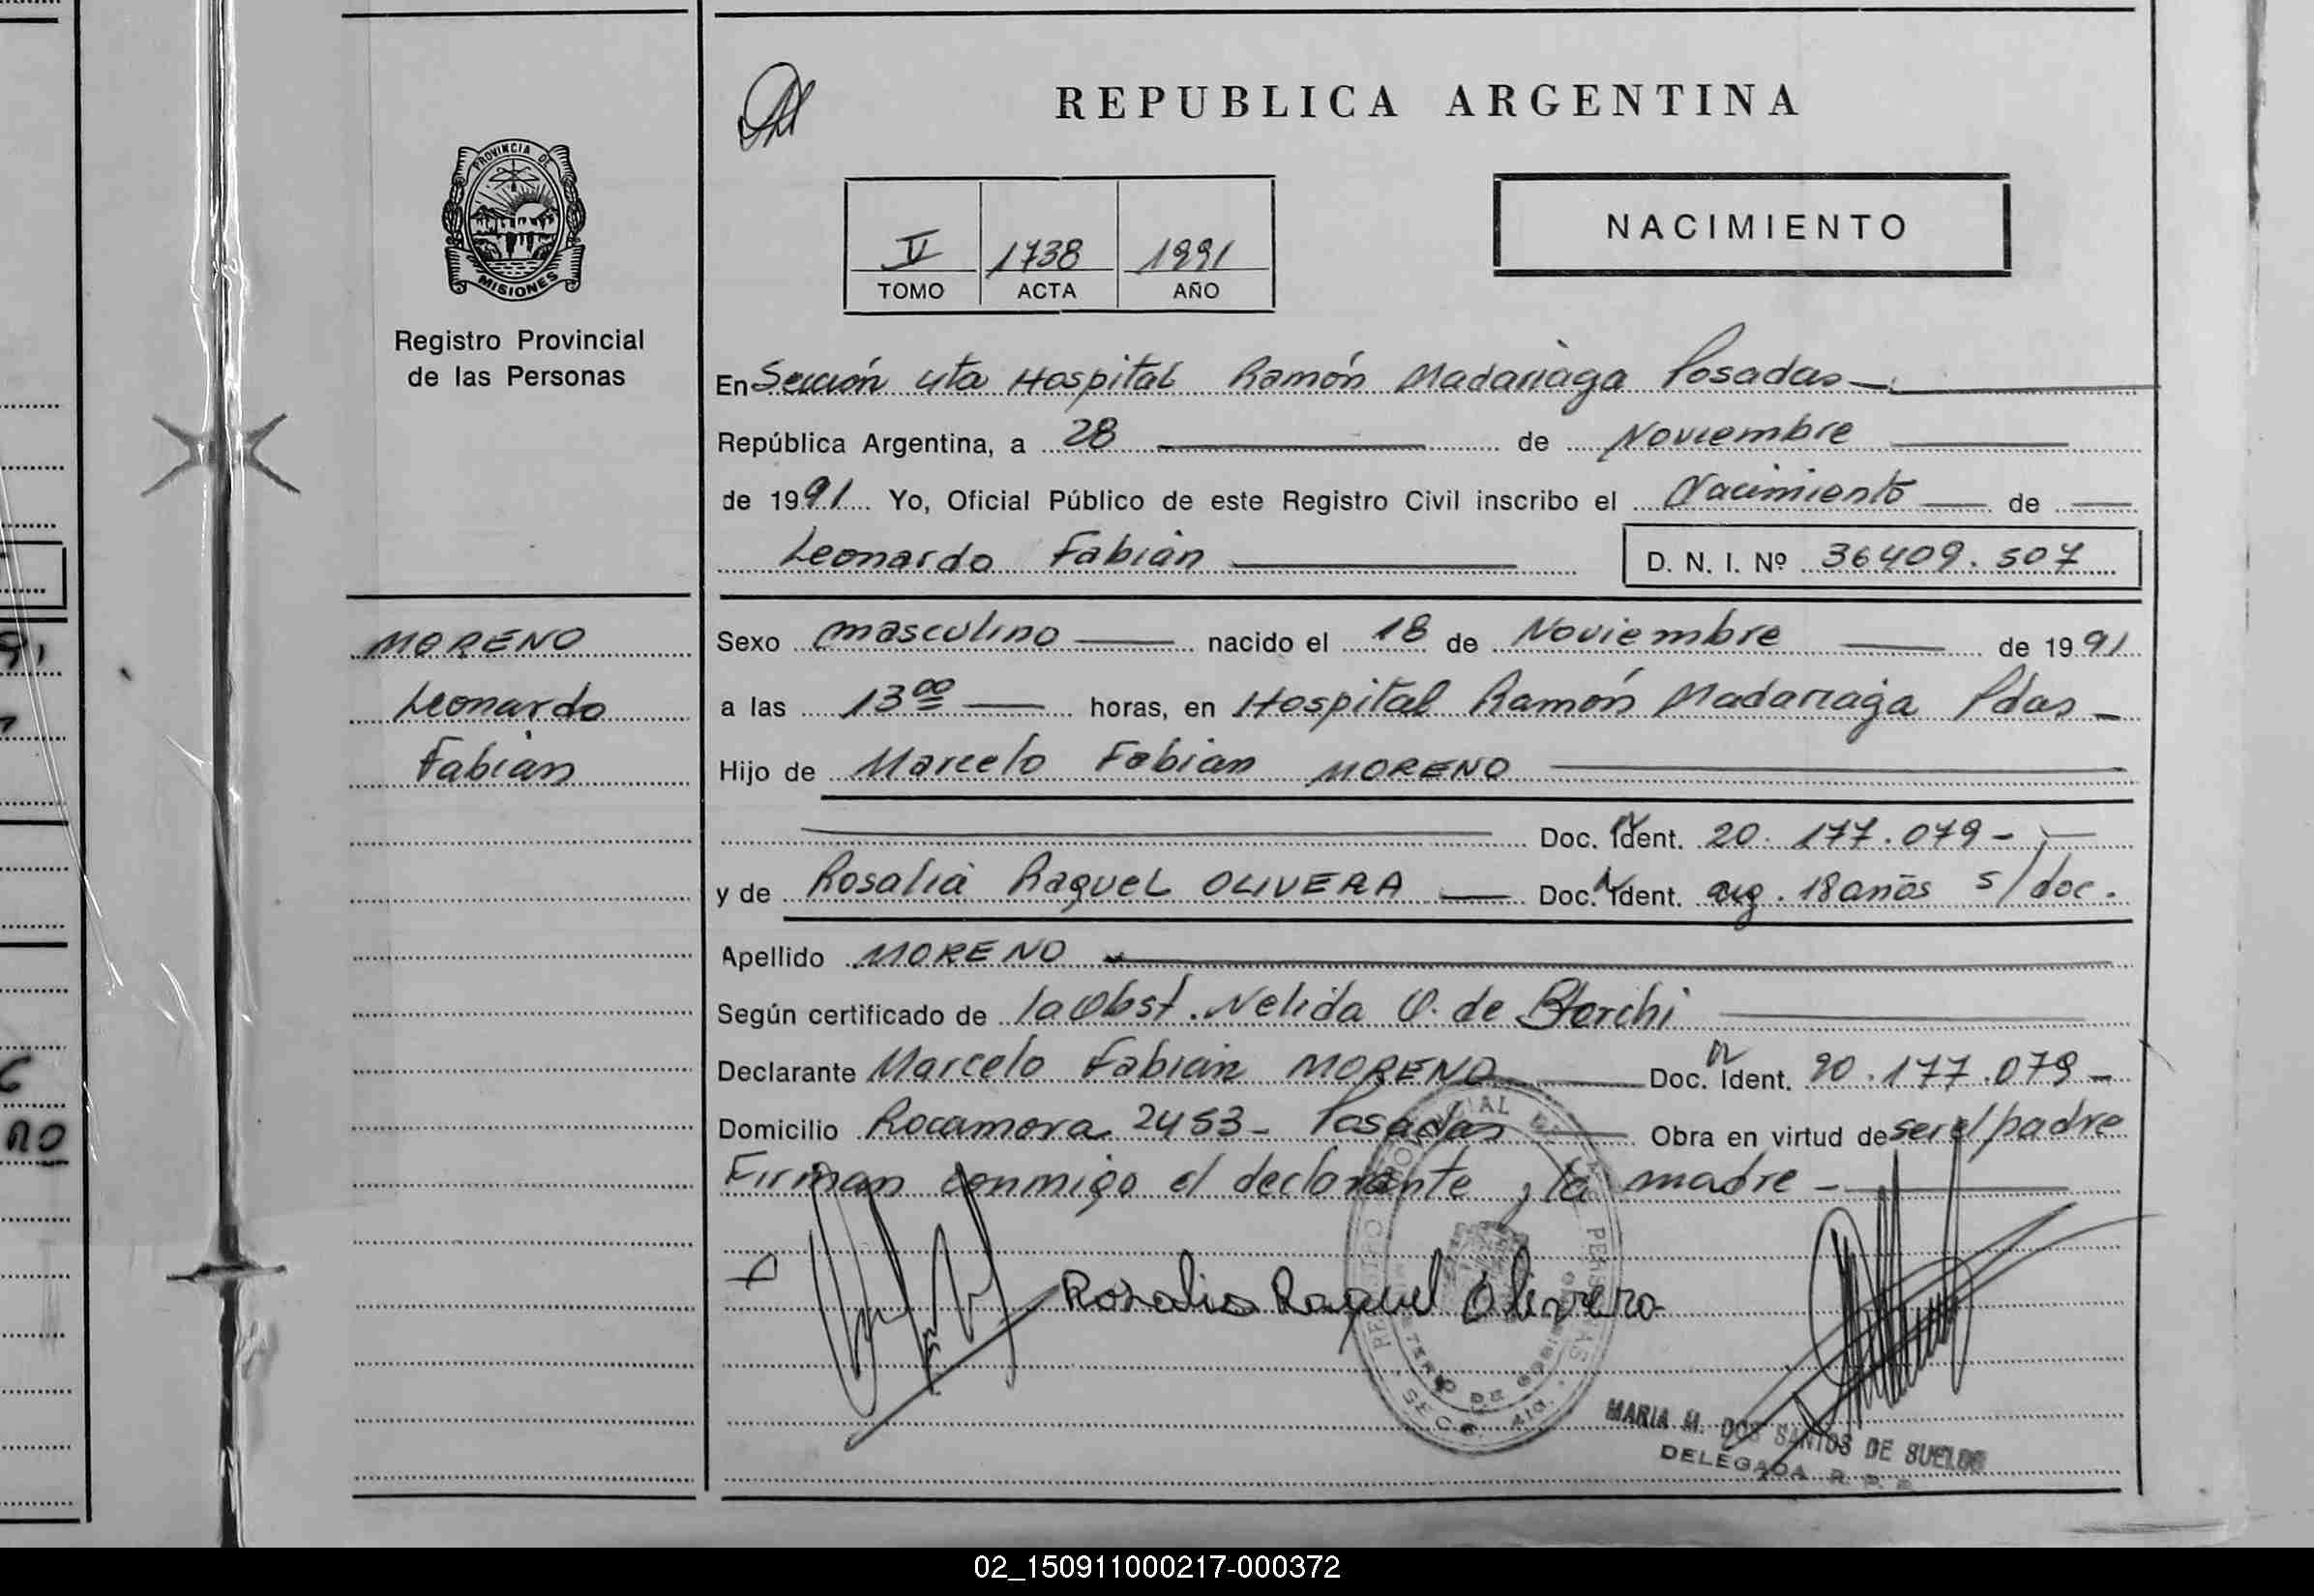 REPUBLICA ARGENTINA
PROVINCIA DE
MISIONES
Registro Provincial
de las Personas
NACIMIENTO
V 1738 1991
TOMO ACTA AÑO
En Sección 4ta Hospital Ramón Madariaga Posadas
República Argentina, a 28 de Noviembre
de 1991 Yo, Oficial Público de este Registro Civil inscribo el Nacimiento de
Leonardo Fabián D. N. I. Nº 36409.507
MORENO
Leonardo
Fabián
Sexo masculino nacido el 18 de Noviembre de 1991
a las 13 00 horas, en Hospital Ramón Madariaga Pdas
Hijo de Marcelo Fabian MORENO
Doc. Ident. 20.177.079
y de Rosalia Raquel OLIVERA Doc. Ident. arg. 18 años s/doc.
Apellido MORENO
Según certificado de la Obst. Nelida O. de
Declarante Marcelo Fabián MORENO Doc. Ident. 20.177.079
Domicilio Rocamora 2453 - Posadas Obra en virtud de ser el padre
Firman conmigo el declarante y la madre
Rosalia Raquel Olivera
MARIA M. DOS SANTOS DE
DELEGADA R. P.
02_150911000217-000372